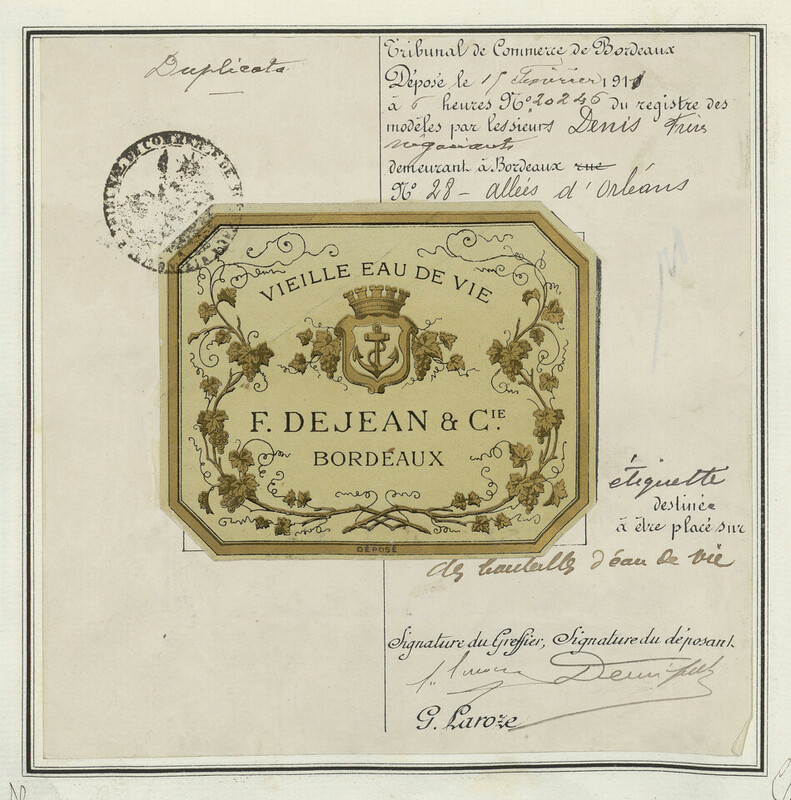 Duplicata
Tribunal de Commerce de Bordeaux
Déposé le 15 Février 1911
à 6 heures Nº 20246 du registre des
modèles par les sieurs Denis Frères
négociants
demeurant à Bordeaux rue
Nº 28 - allées d'Orléans
TRIBUNAL DE COMMERCE DE
VIEILLE EAU DE VIE
F. DEJEAN & CIE.
BORDEAUX
DÉPOSÉ
étiquette
destinée
à être placé sur
des bouteilles d'eau de vie
Signature du Greffier, Signature du déposant
G. Laroze